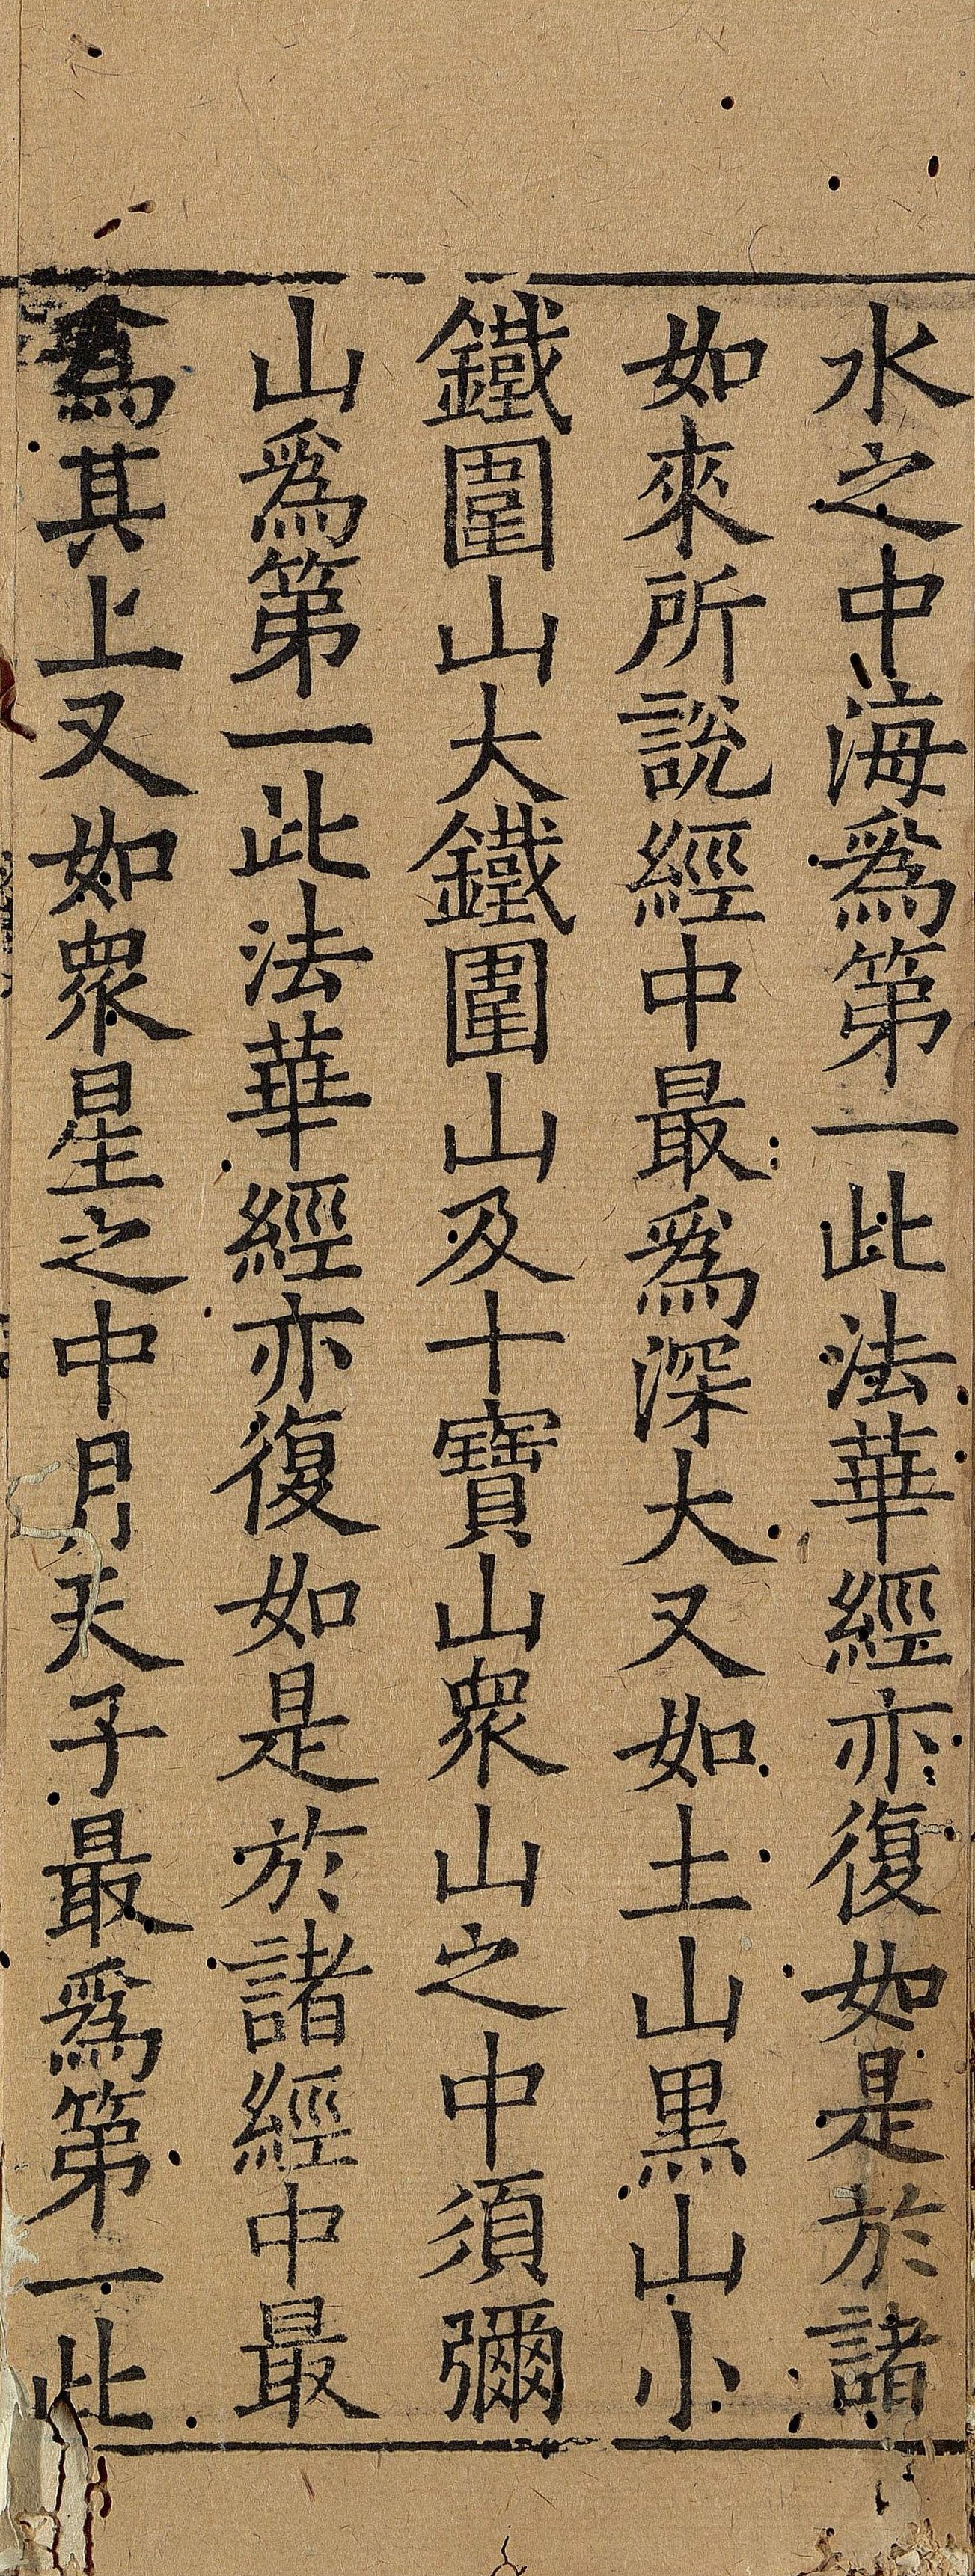 水之中海爲第一此法華經亦復如是於諸
如來所說經中最爲深大又如土山黒山小
鐵圍山大鐵圍山及十寶山衆山之中須彌
山爲第一此法華經亦復如是於諸經中最
爲其上又如衆星之中月天子最爲第一此